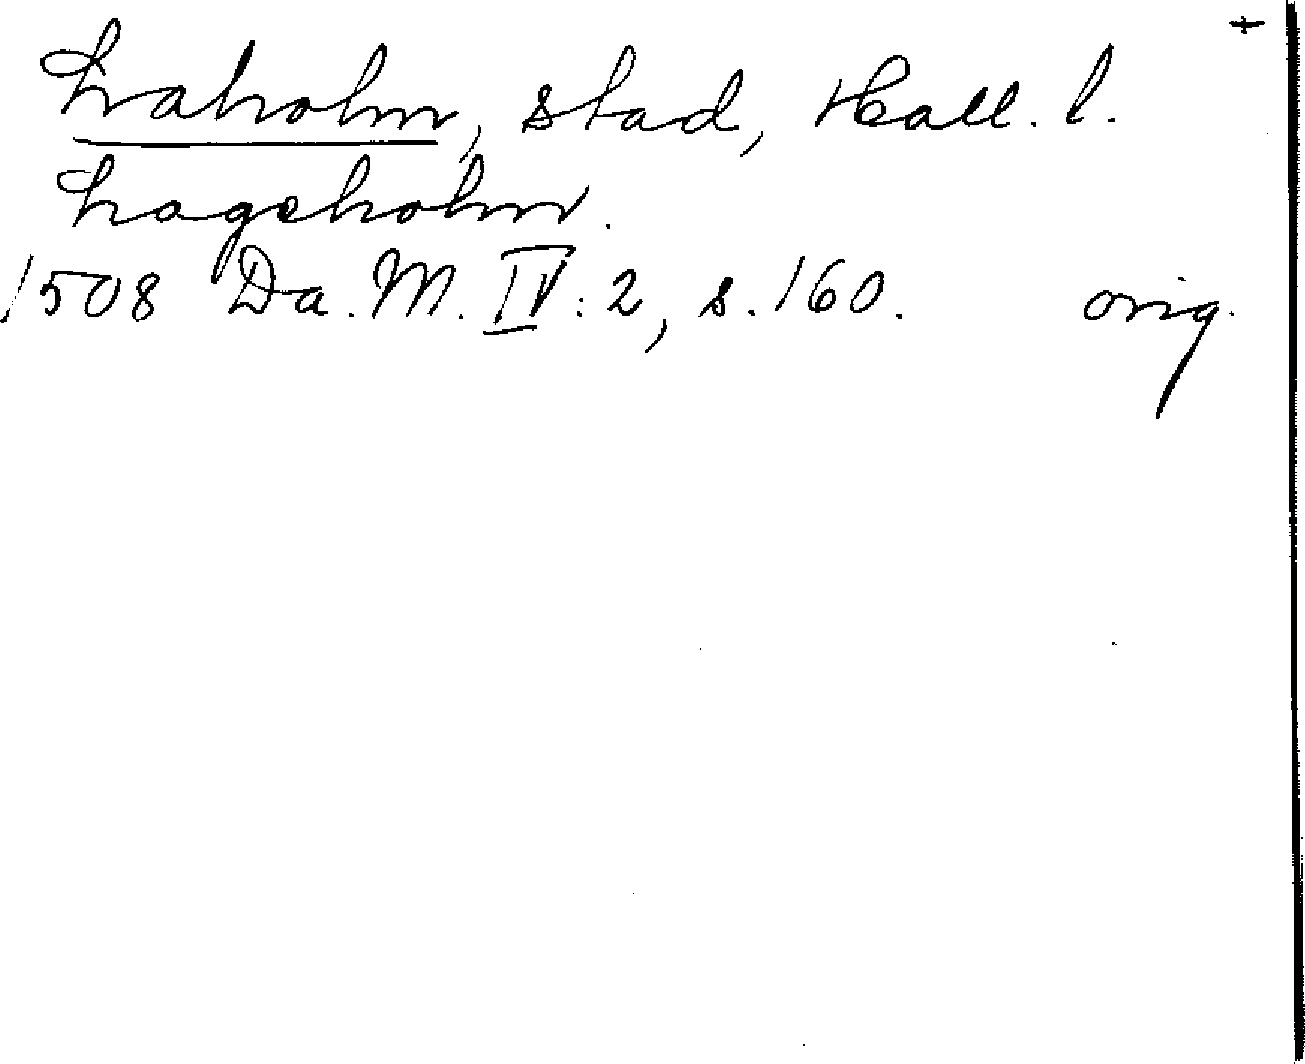 +
Laholm, stad, Hall. l.
Lageholm.
1508 Da. M. IV: 2, s. 160. orig.